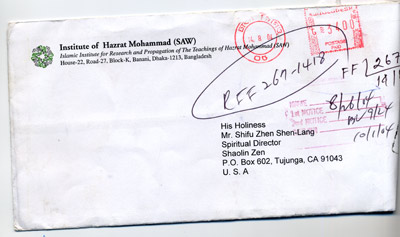 Institute of Hazrat Mohammad (SAW)
Islamic Institute for Research and Propagation of The Teachings of Hazrat Mohammad (SAW)
House-22, Road-27, Block-K, Banani, Dhaka-1213, Bangladesh
RFF 267-1418
FF
267
8/26/04
NAME
1st NOTICE
9/24
10/1/04
His Holiness
Mr. Shifu Zhen Shen-Lang
Spiritual Director
Shaolin Zen
P.O. Box 602, Tujunga, CA 91043
U. S. A